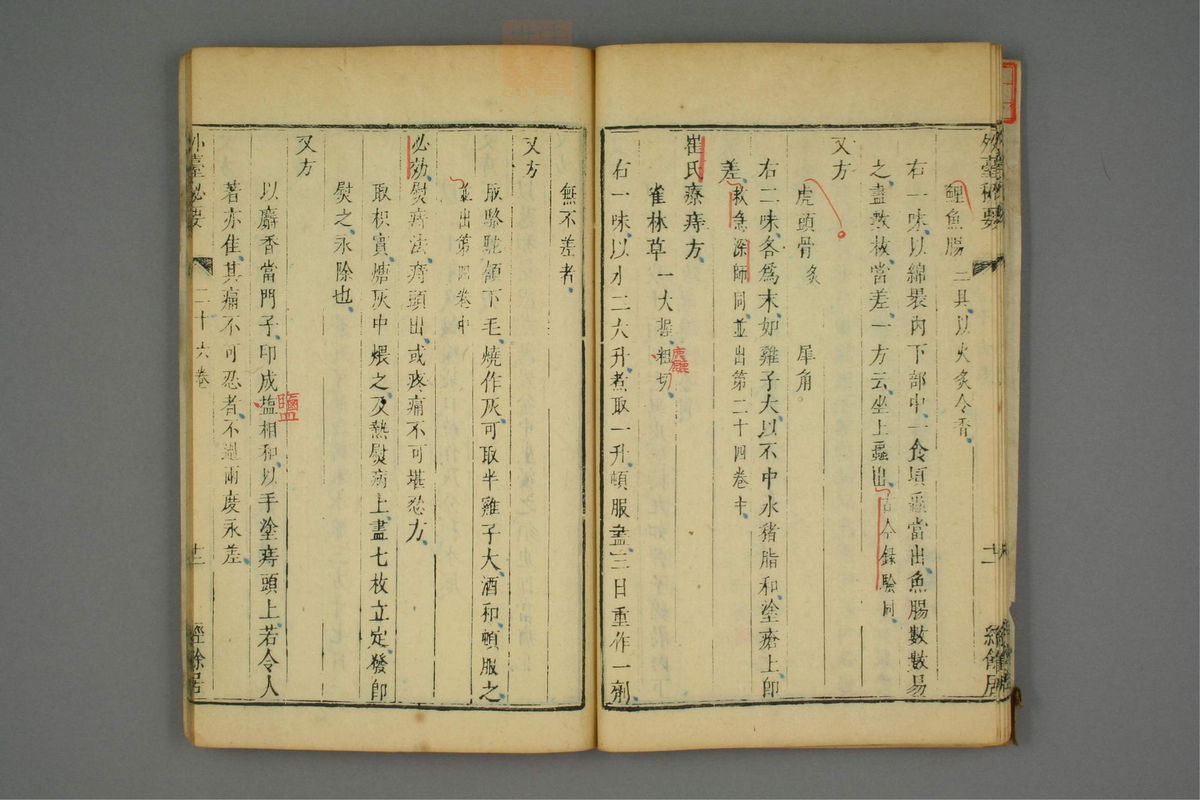 外臺秘要
鯉魚腸二具以火炙令香
右一味以綿褁内下部中一食頃蟲當出魚腸數數易
之盡數枚當差一方云坐上蟲出古今錄驗同
又方
虎頭骨炙 犀角
右二味各爲末如雞子大以不中水豬脂和塗瘡上即
差救急深師同並出第二十四卷中
崔氏療痔方
雀林草一大握粗切
右一味以水二大升煮取一升頓服盡三日重作一劑
無不差者
又方
取駱駝頷下毛燒作灰可取半雞子大酒和頓服之
並出第四卷中
必効熨痔法痔頭出或疼痛不可堪忍方
取枳實煻灰中煨之及熱熨病上盡七枚立定發即
熨之永除也
又方
以麝香當門子印成塩相和以手塗痔頭上若令人
鹽
著亦佳其痛不可忍者不過兩度永差
外臺秘要
二十六卷
十二
經餘居